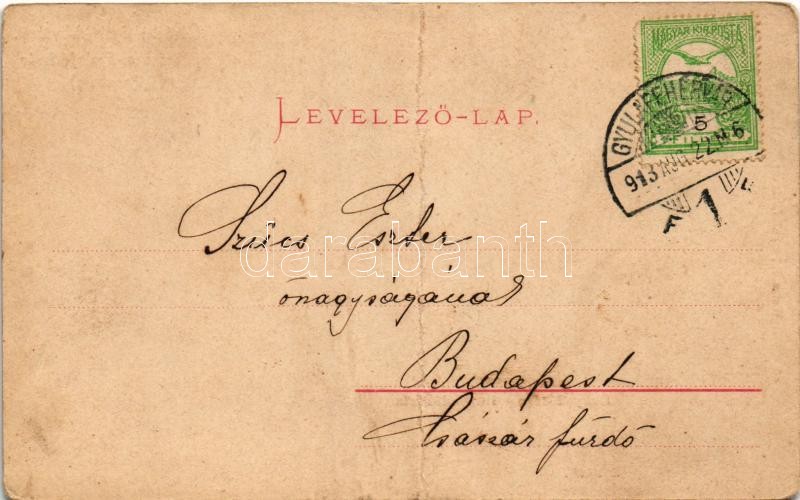 MAGYAR KIR. POSTA
GYULAFEHÉRVÁR
5
913 AUG 22. N 6
F 1
LEVELEZŐ-LAP.
Szücs Eszter
darabanth
őnagyságának
Budapest
Császár fürdő